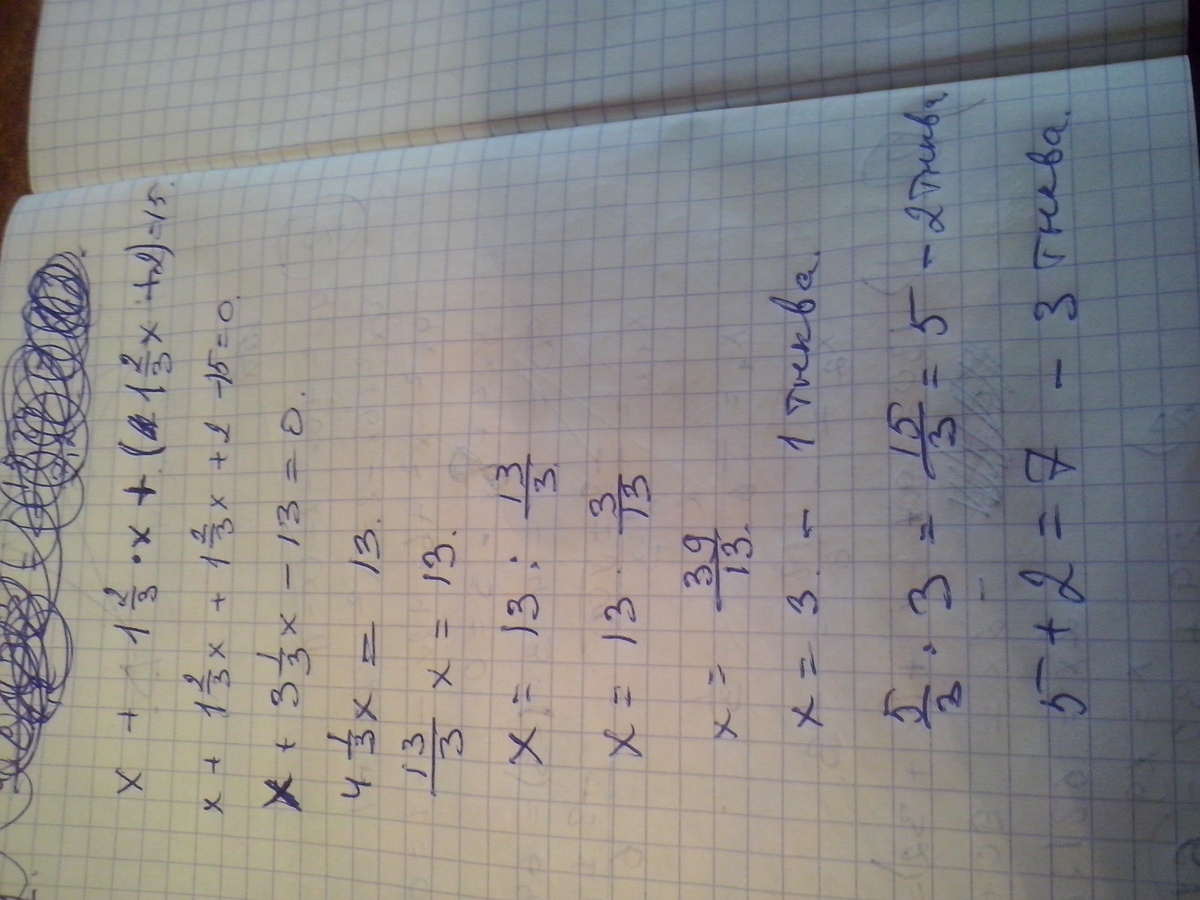 x + 1 2/3 • x + (1 2/3 x + 2) = 15.
x + 1 2/3 x + 1 2/3 x + 2 - 15 = 0.
x + 3 1/3 x - 13 = 0.
4 1/3 x = 13.
13/3 x = 13.
x = 13 : 13/3
x = 13 · 3/13
x = 39/13.
x = 3. - 1 тыква.
5/3 · 3 = 15/3 = 5 - 2 тыква
5 + 2 = 7 - 3 тыква.